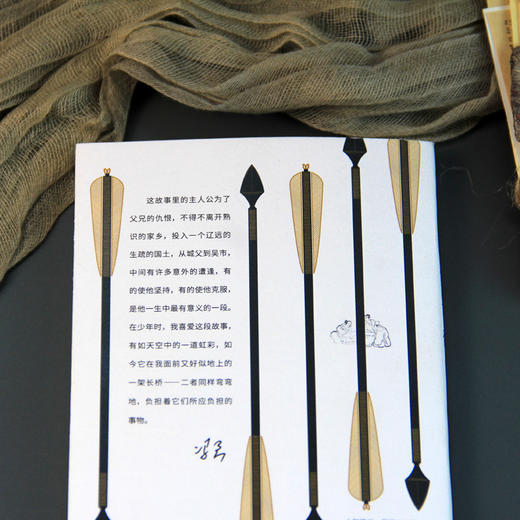 这故事里的主人公为了
父兄的仇恨，不得不离开熟
识的家乡，投入一个辽远的
生疏的国土，从城父到吴市，
中间有许多意外的遭逢，有
的使他坚持，有的使他克服，
是他一生中最有意义的一段。
在少年时，我喜爱这段故事，
有如天空中的一道虹彩，如
今它在我面前又好似地上的
一架长桥——二者同样弯弯
地，负担着它们所应负担的
事物。
冯至